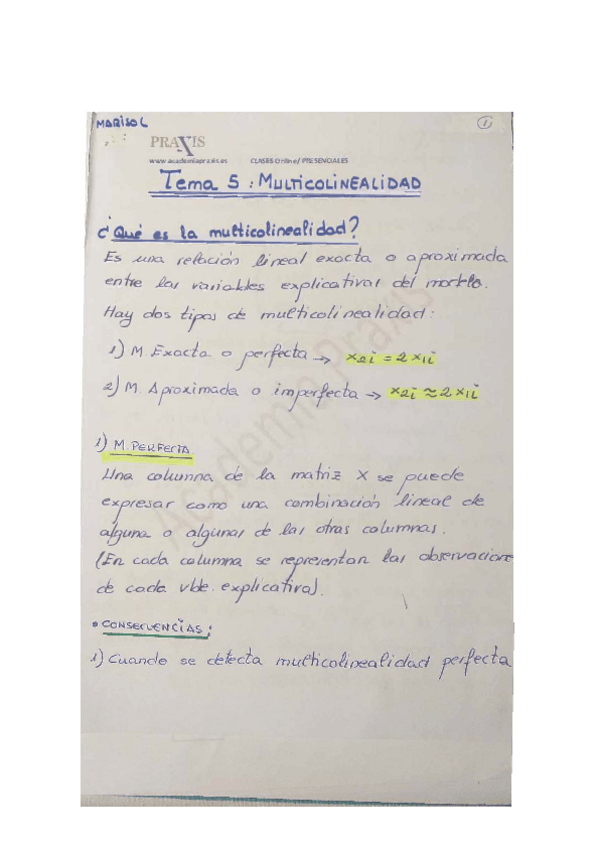 MARISOL
1
PRAXIS
www.academiapraxis.es CLASES Online/ PRESENCIALES
Tema 5: MULTICOLINEALIDAD
¿Qué es la multicolinealidad?
Es una relación lineal exacta o aproximada
entre las variables explicativas del modelo.
Hay dos tipos de multicolinealidad:
1) M. Exacta o perfecta → x2i = 2 x1i
2) M. Aproximada o imperfecta → x2i ≈ 2 x1i
1) M. PERFECTA
Una columna de la matriz X se puede
expresar como una combinación lineal de
alguna o algunas de las otras columnas.
(En cada columna se representan las observacione
de cada vble. explicativa).
• CONSECUENCIAS:
1) Cuando se detecta multicolinealidad perfecta
Academia Praxis